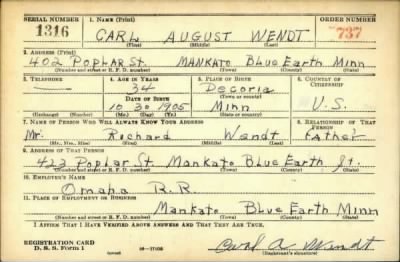 SERIAL NUMBER 1. NAME (Print) ORDER NUMBER
1316 CARL AUGUST WENDT 787
(First) (Middle) (Last)
2. ADDRESS (Print)
402 POPLAR ST. MANKATO BLUE EARTH MINN
(Number and street or R. F. D. number) (Town) (County) (State)
3. TELEPHONE 4. AGE IN YEARS 5. PLACE OF BIRTH 6. COUNTRY OF CITIZENSHIP
34 Decoria
DATE OF BIRTH (Town or county)
10 30 1905 Minn U.S.
(Exchange) (Number) (Mo.) (Day) (Yr.) (State or country)
7. NAME OF PERSON WHO WILL ALWAYS KNOW YOUR ADDRESS 8. RELATIONSHIP OF THAT PERSON
Mr. Richard Wendt father
(Mr., Mrs., Miss) (First) (Middle) (Last)
9. ADDRESS OF THAT PERSON
423 Poplar St. Mankato Blue Earth
(Number and street or R. F. D. number) (Town) (County) (State)
10. EMPLOYER'S NAME
Omaha R.R.
11. PLACE OF EMPLOYMENT OR BUSINESS
Mankato Blue Earth Minn
(Number and street or R. F. D. number) (Town) (County) (State)
I AFFIRM THAT I HAVE VERIFIED ABOVE ANSWERS AND THAT THEY ARE TRUE.
REGISTRATION CARD
D. S. S. Form 1 Carl A. Wendt
(Registrant's signature)